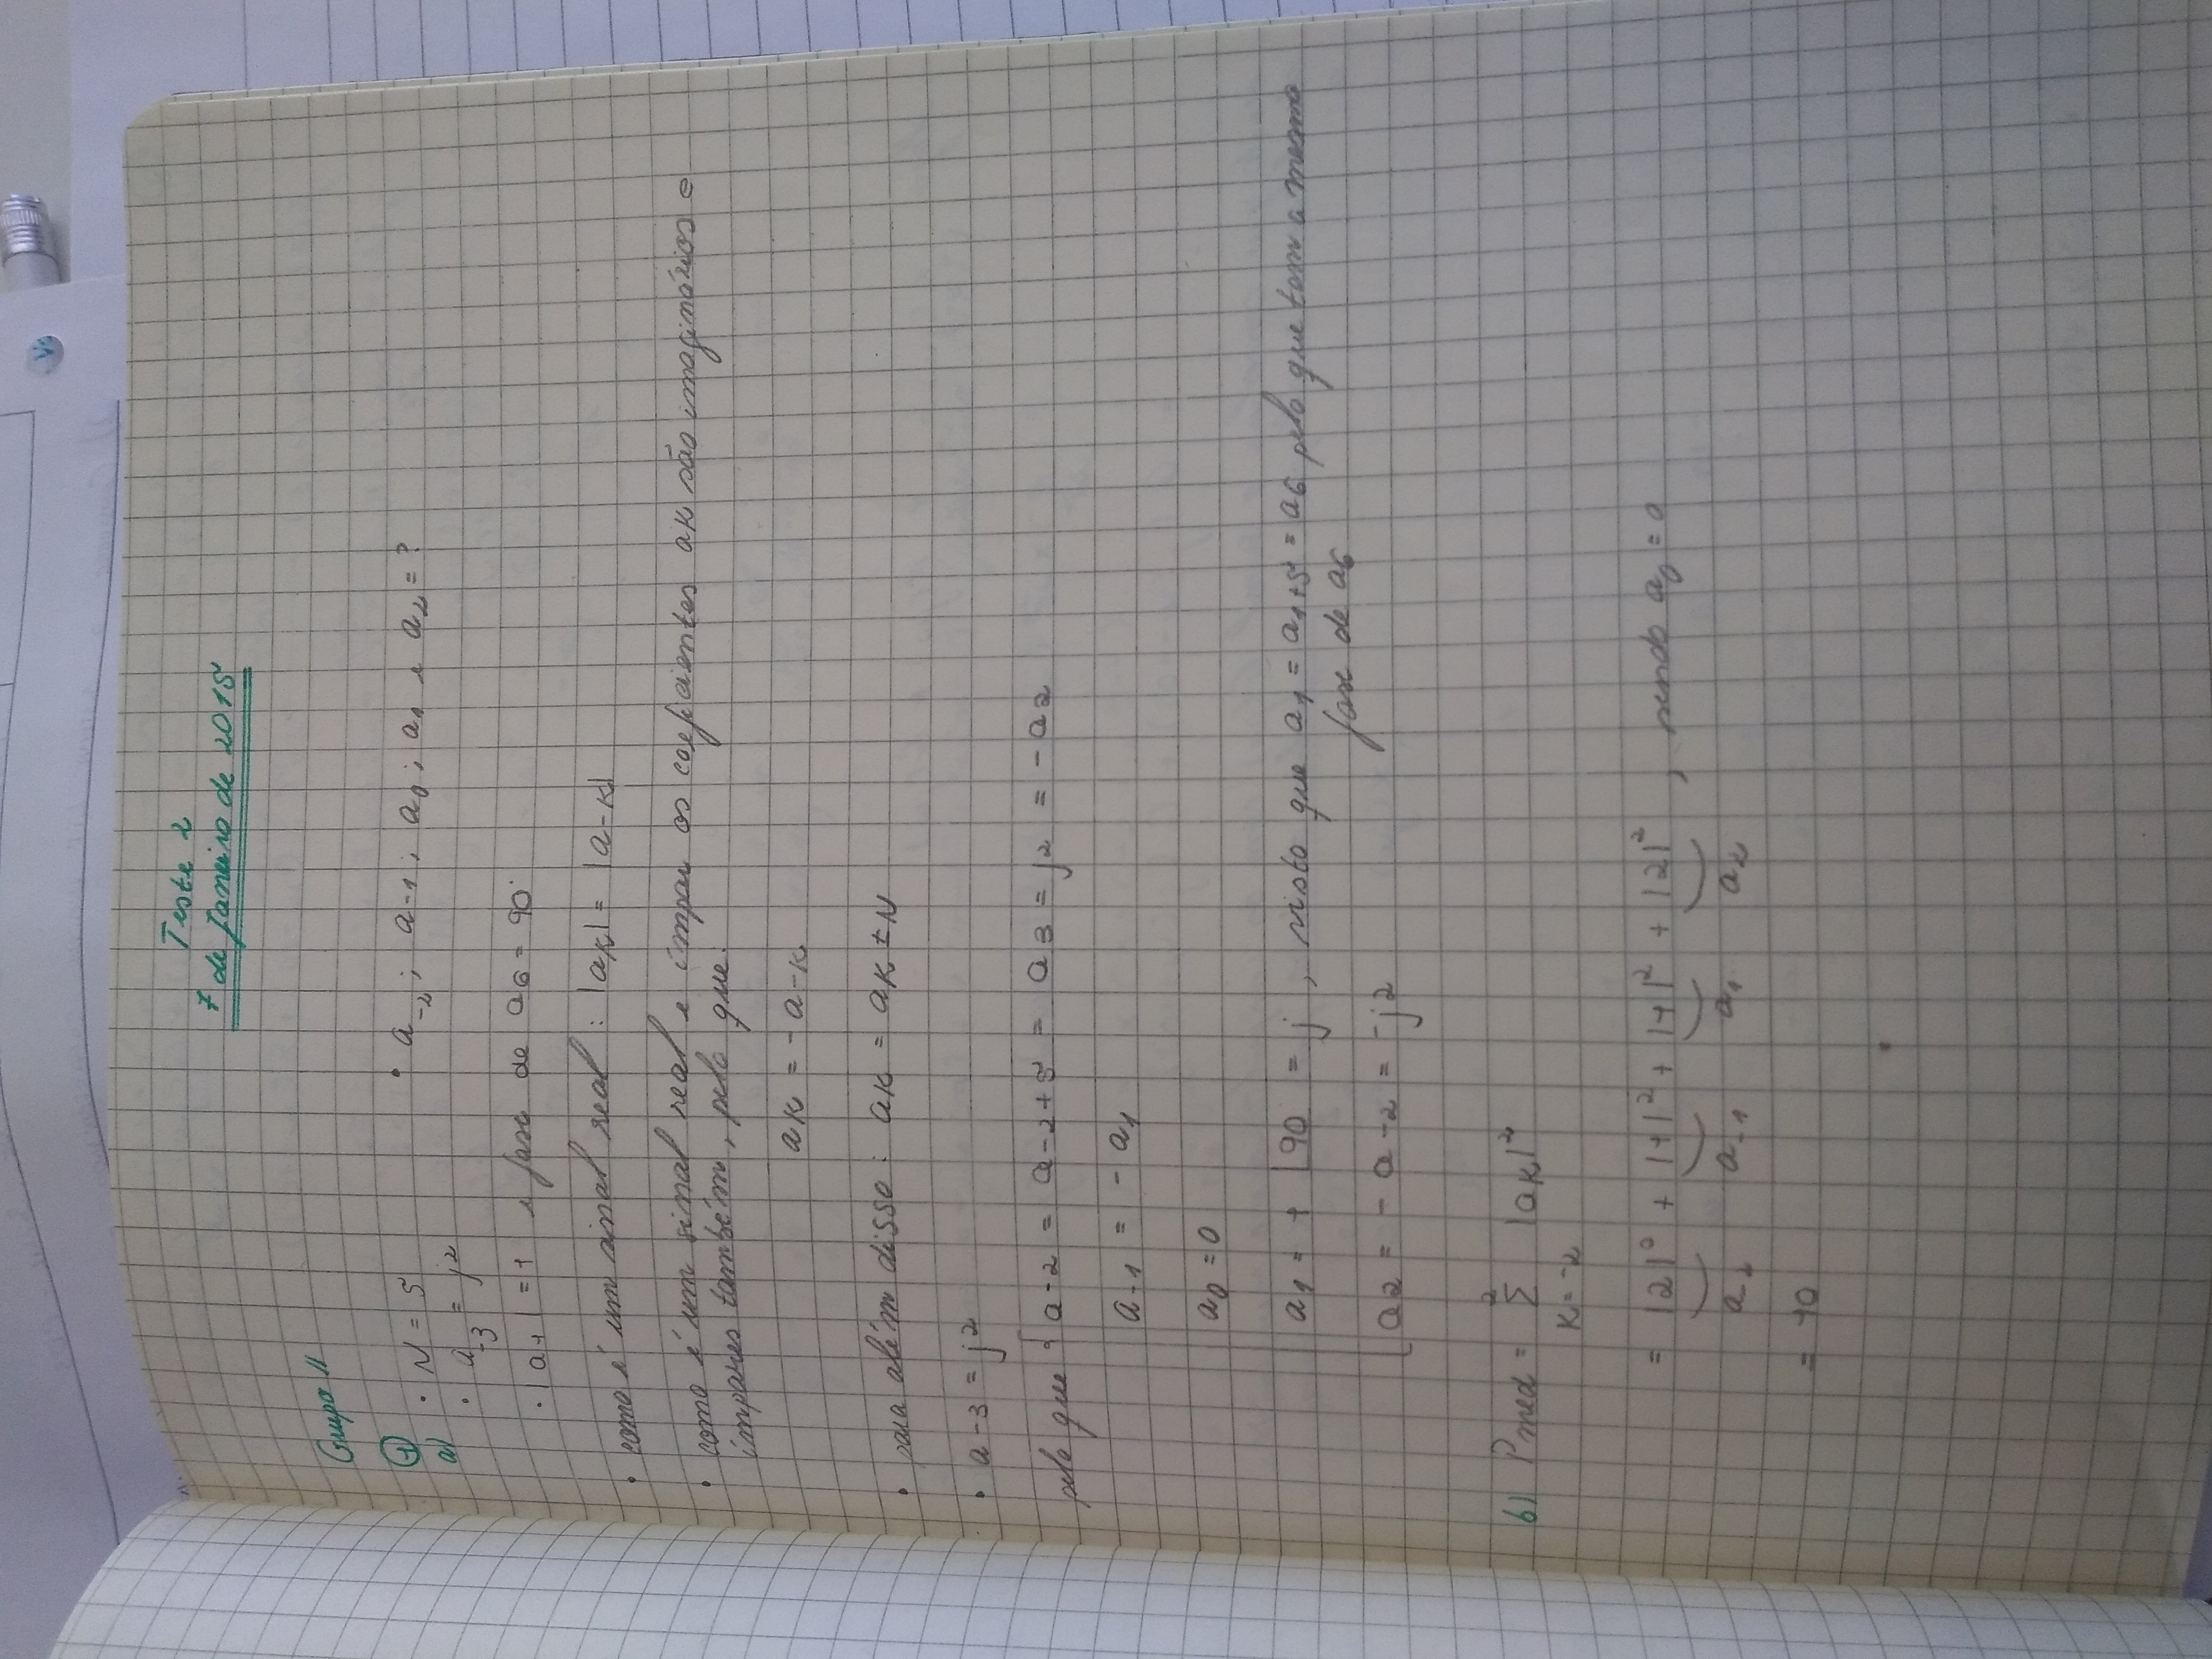 Teste 2
7 de Janeiro de 2015
Grupo II
1
a) • N = 5 • a-2 ; a-1 ; a0 ; a1 e a2 = ?
• a-3 = j2
• |a1| = 1 e fase de a6 = 90°
• como é um sinal real : |aK| = |a-K|
• como é um sinal real e ímpar os coeficientes aK são imaginários e
ímpares também, pelo que:
aK = -a-K
• para além disso : aK = aK±N
• a-3 = j2
pelo que { a-2 = a-2+5 = a3 = j2 = -a2
a-1 = - a1
a0 = 0
a1 = 1 ∠90 = j , visto que a1 = a1+5 = a6 pelo que tem a mesma
fase de a6
a2 = - a-2 = -j2
b) Pmed = 2 Σ K=-2 |aK|²
= |2|² + |1|² + |1|² + |2|² , sendo a0 = 0
a-2 a-1 a1 a2
= 10